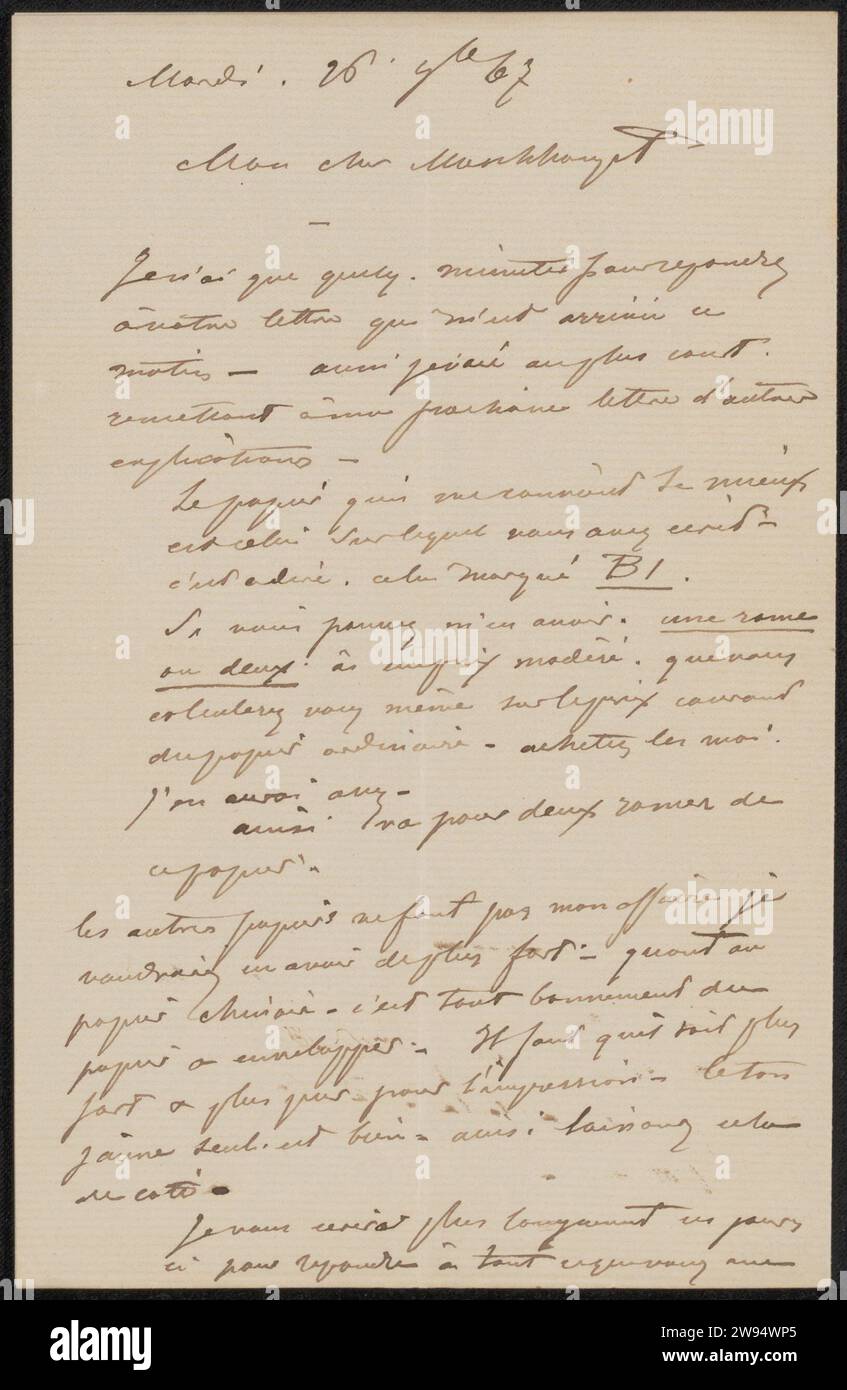 Mardi. 26 9bre 67
Mon cher
Je n'ai que quelq. minutes pour repondre
à votre lettre qui m'est arrivée ce
matin — aussi je vais au plus court.
remettant à ma prochaine lettre d'autres
explications —
Le papier qui me convient le mieux
est celui sur lequel vous avez écrit —
c'est a dire. celui marqué B1.
Si vous pouvez m'en avoir. une rame
ou deux. à un prix modéré. que vous
calculerez vous même sur le prix courant
du papier ordinaire — achetez les moi.
J'en aurai assez —
ainsi va pour deux rames de
ce papier. —
les autres papiers ne font pas mon affaire je
voudrais en avoir de plus fort. — quant au
papier chinois — c'est tout bonnement du
papier a envelopper. — Il faut qu'il soit plus
fort & plus pur pour l'impression. — le ton
jaune seul est bien — ainsi laissons cela
de coté —
Je vous écrirai plus longuement ces jours
ci pour repondre à tout ce que vous me
alamy
2W94WP5
alamy
Image ID: 2W94WP5
www.alamy.com